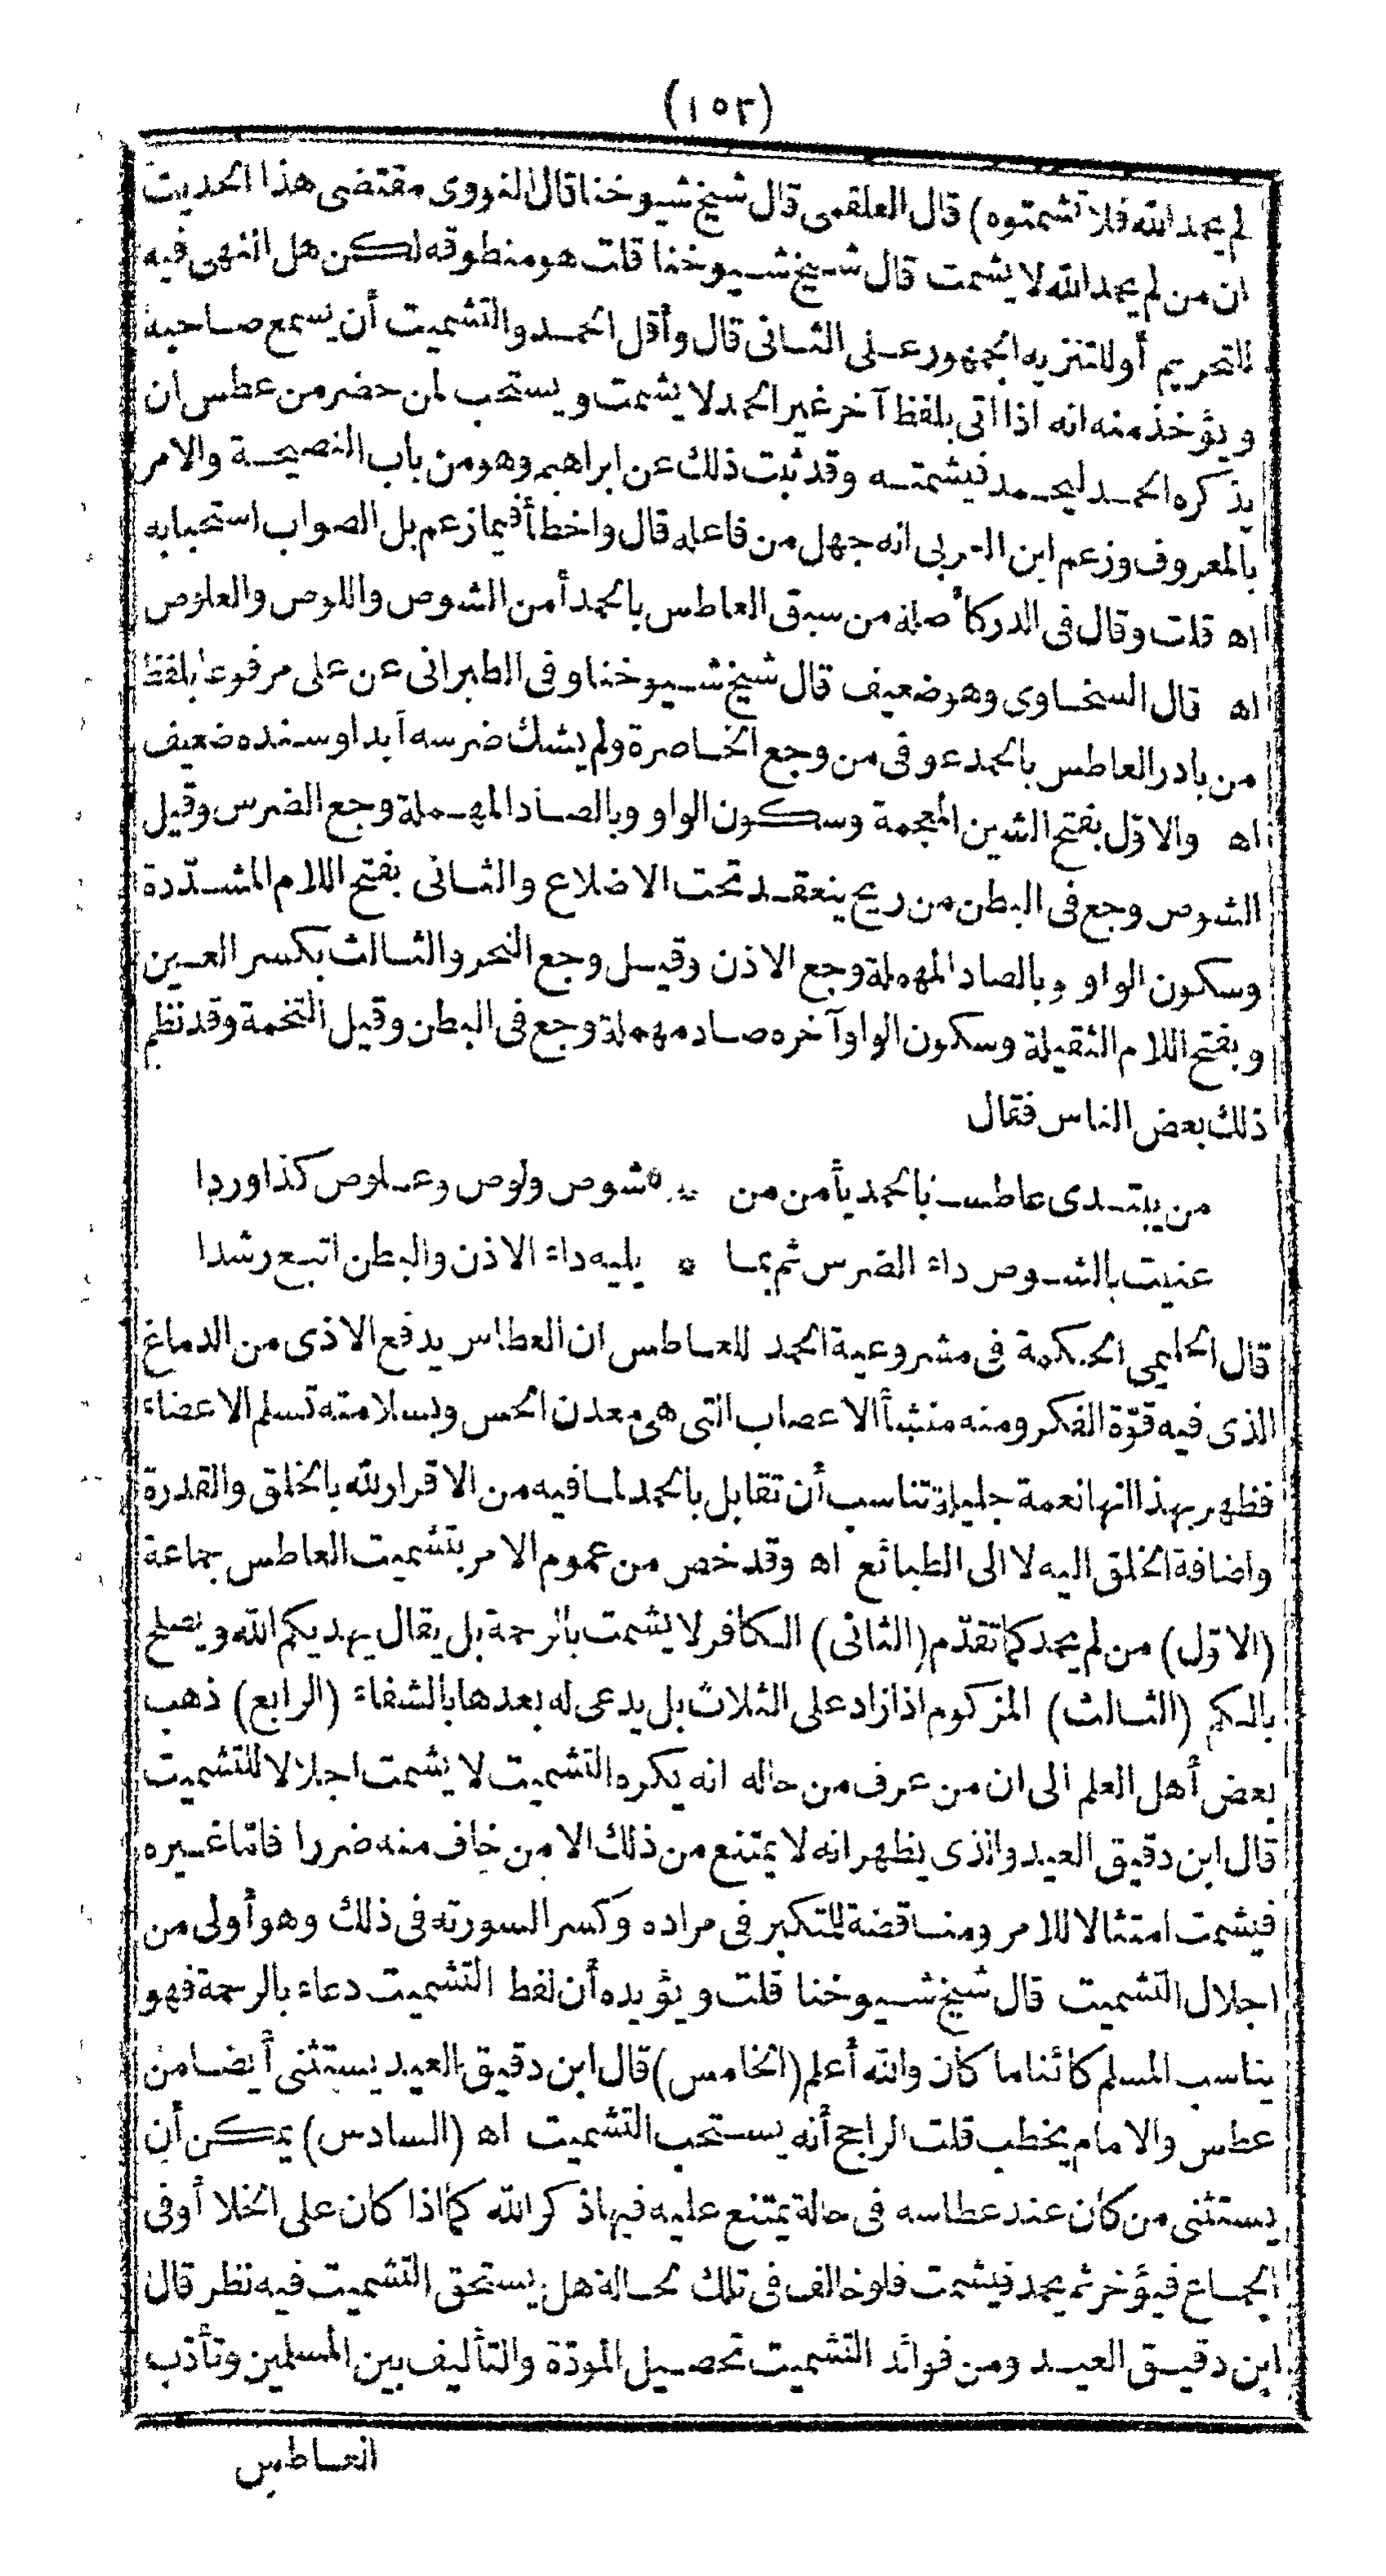 (١٥٢)
لم يحمد الله فلا تشمتوه) قال العلقمى قال شيخ شيوخنا قال النووى مقتضى هذا الحديث
ان من لم يحمد الله لا يشمت قال شيخ شيوخنا قلت هو منطوقه لكن هل النهى فيه
للتحريم أو للتنزيه الجمهور على الثانى قال وأقل الحمد والتشميت أن يسمع صاحبه
ويؤخذ منه انه اذا اتى بلفظ آخر غير الحمد لا يشمت ويستحب لمن حضر من عطس ان
يذكره الحمد ليحمد فيشمته وقد ثبت ذلك عن ابراهيم وهو من باب النصيحة والامر
بالمعروف وزعم ابن العربى انه جهل من فاعله قال واخطأ فيما زعم بل الصواب استحبابه
اه قلت وقال فى الدر كأصله من سبق العاطس بالحمد أمن الشوص واللوص والعلوص
اه قال السخاوى وهو ضعيف قال شيخ شيوخنا وفى الطبرانى عن على مرفوعا بلفظ
من بادر العاطس بالحمد عوفى من وجع الخاصرة ولم يشك ضرسه أبدا وسنده ضعيف
اه والاوّل بفتح الشين المعجمة وسكون الواو وبالصاد المهملة وجع الضرس وقيل
الشوص وجع فى البطن من ريح ينعقد تحت الاضلاع والثانى بفتح اللام المشدّدة
وسكون الواو وبالصاد المهملة وجع الاذن وقيل وجع النحر والثالث بكسر العين
وبفتح اللام الثقيلة وسكون الواو آخره صاد مهملة وجع فى البطن وقيل التخمة وقد نظم
ذلك بعض الناس فقال
من يبتدى عاطسا بالحمد يأمن من * شوص ولوص وعلوص كذا وردا
عنيت بالشوص داء الضرس ثم بما * يليه داء الاذن والبطن اتبع رشدا
قال الحليمى الحكمة فى مشروعية الحمد للعاطس ان العطاس يدفع الاذى من الدماغ
الذى فيه قوّة الفكر ومنه منشأ الاعصاب التى هى معدن الحس وبسلامته تسلم الاعضاء
فظهر بهذا انها نعمة جليلة تناسب أن تقابل بالحمد لما فيه من الاقرار لله بالخلق والقدرة
واضافة الخلق اليه لا الى الطبائع اه وقد خص من عموم الامر بتشميت العاطس جماعة
(الاوّل) من لم يحمد كما تقدّم (الثانى) الكافر لا يشمت بالرحمة بل يقال يهديكم الله ويصلح
بالكم (الثالث) المزكوم اذا زاد على الثلاث بل يدعى له بعدها بالشفاء (الرابع) ذهب
بعض أهل العلم الى ان من عرف من حاله انه يكره التشميت لا يشمت اجلالا للتشميت
قال ابن دقيق العيد والذى يظهر انه لا يمتنع من ذلك الا من خاف منه ضررا فاما غيره
فيشمت امتثالا للامر ومناقضة للمتكبر فى مراده وكسرا لسورته فى ذلك وهو أولى من
اجلال التشميت قال شيخ شيوخنا قلت ويؤيده أن لفظ التشميت دعاء بالرحمة فهو
يناسب المسلم كائنا ما كان والله أعلم (الخامس) قال ابن دقيق العيد يستثنى أيضا من
عطس والامام يخطب قلت الراجح أنه يستحب التشميت اه (السادس) يمكن أن
يستثنى من كان عند عطاسه فى حالة يمتنع عليه فيها ذكر الله كما اذا كان على الخلا أو فى
الجماع فيؤخر ثم يحمد فيشمت فلو خالف فى تلك الحالة هل يستحق التشميت فيه نظر قال
ابن دقيق العيد ومن فوائد التشميت تحصيل المودّة والتأليف بين المسلمين وتأدّب
العاطس